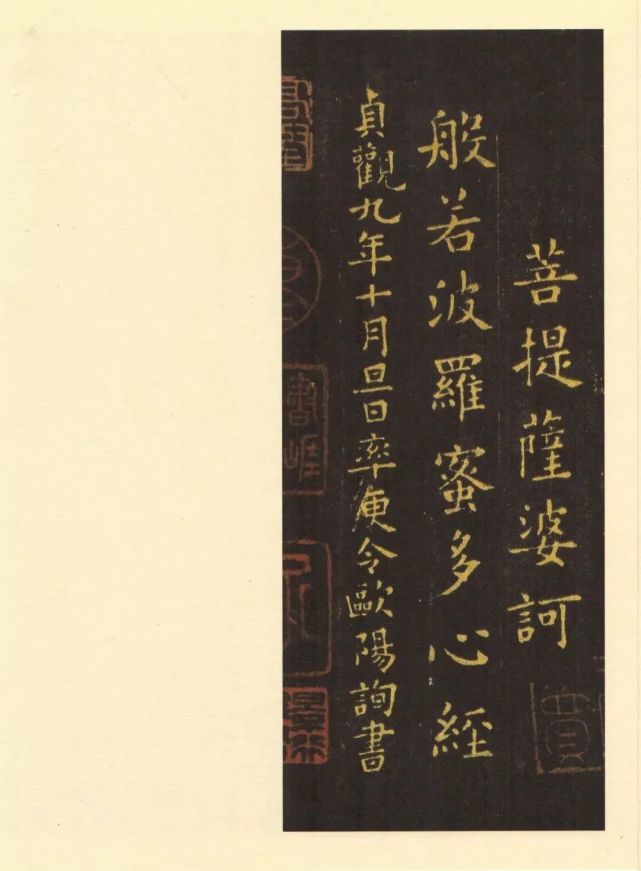 菩提薩婆訶
般若波羅蜜多心經
貞觀九年十月旦日率更令歐陽詢書